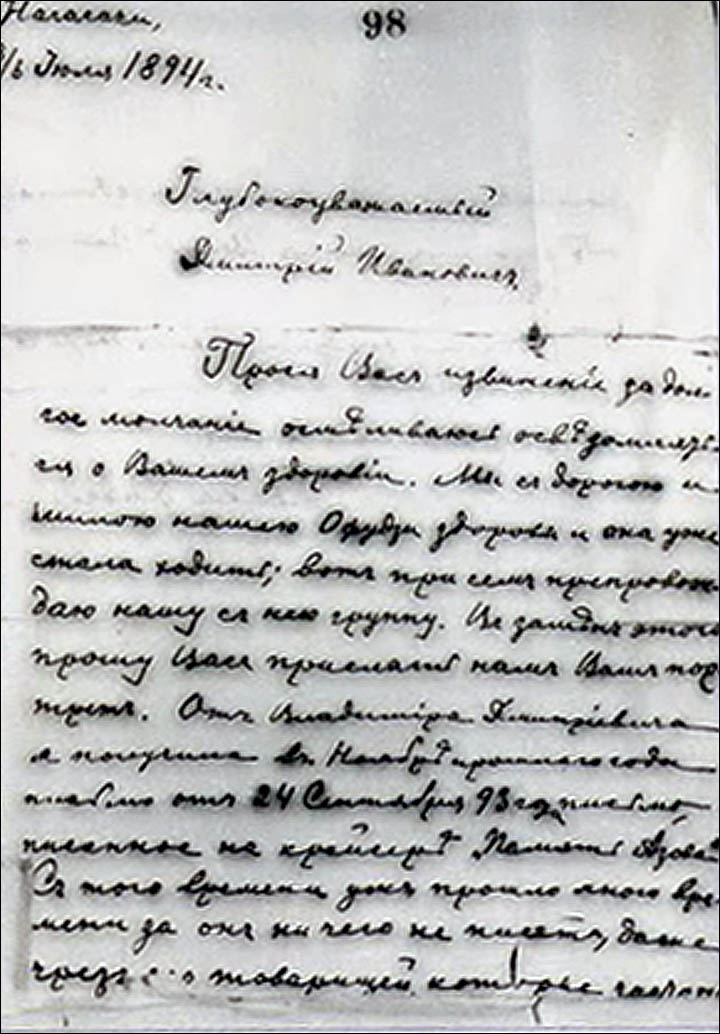 98
Нагасаки,
/6 Іюля 1894 г.
Глубокоуважаемый
Дмитрій Ивановичъ,
Прося Васъ извиненіе за дол
гое молчаніе осмѣливаюсь освѣдомлять
ся о Вашемъ здоровіи. Мы съ дорогою и
милою нашею Офудзи здоровы и она уже
стала ходить; вотъ при семъ препровож
даю нашу съ нею группу. Въ замѣнъ этого
прошу Васъ прислать намъ Вашъ пор
третъ. Отъ Владиміра Дмитріевича
я получила въ Ноябрѣ прошлаго года
письмо отъ 24 Сентября 93 года письмо,
писанное на крейсерѣ Память Азова.
Съ того времени ужъ прошло много вре
мени за онъ ни чего не пишетъ, даже
чрезъ товарищей, которые